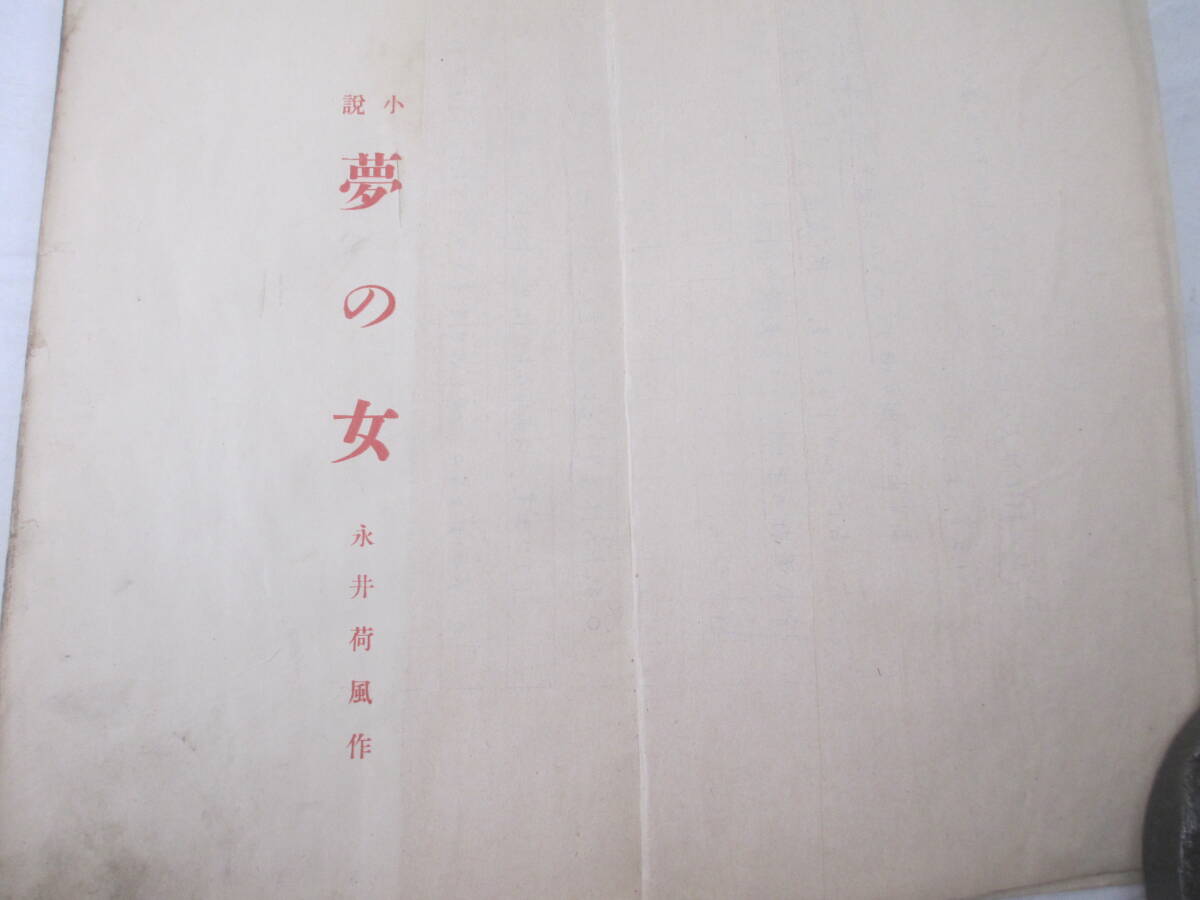 小説
夢の女
永井荷風作